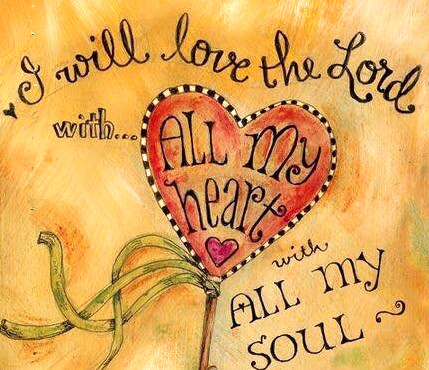 I will love the Lord
with...
ALL my
heart
with
ALL my
SOUL ~